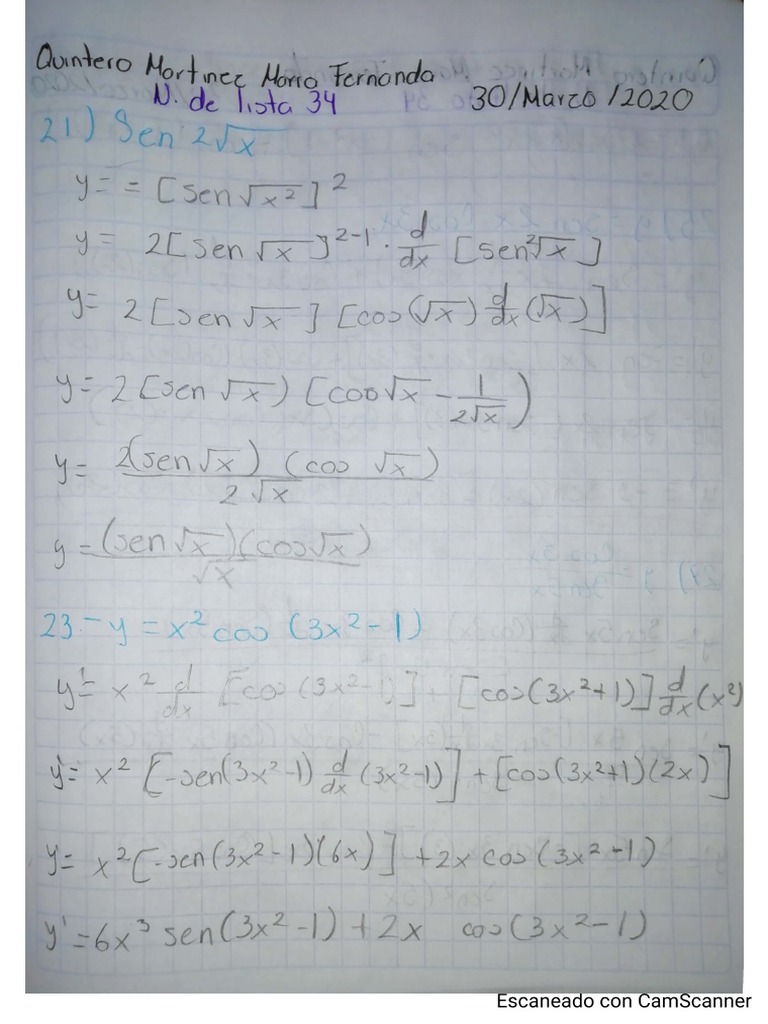 Quintero Martinez Maria Fernanda
N. de lista 34 30/Marzo/2020
21) Sen 2√x
y= = [sen √x²]²
y= 2[sen √x]²⁻¹ · d/dx [sen²√x]
y= 2[sen √x] [cos(√x) d/dx (√x)]
y= 2[sen √x) [cos√x - 1/2√x)
y= 2(sen √x) (cos √x) / 2√x
y = (sen √x)(cos√x) / √x
23.- y = x² cos (3x²-1)
y'= x² d/dx [cos (3x²-1)] + [cos(3x²+1)] d/dx (x²)
y'= x² [-sen(3x²-1) d/dx (3x²-1)] + [cos(3x²+1)(2x)]
y= x² [-sen(3x²-1)(6x)] +2x cos(3x²-1)
y'=6x³ sen(3x²-1)+2x cos(3x²-1)
Escaneado con CamScanner